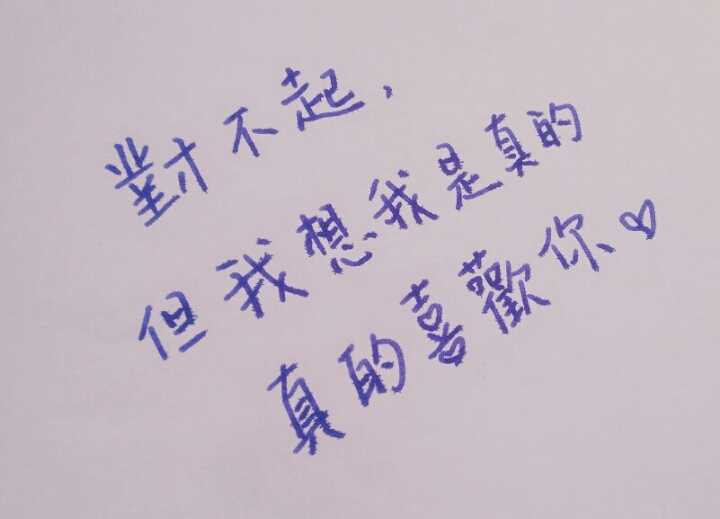 對不起,
但我想我是真的
真的喜歡你♡